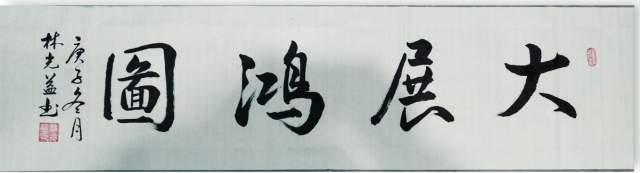 大展鴻圖
庚子冬月
林光益书